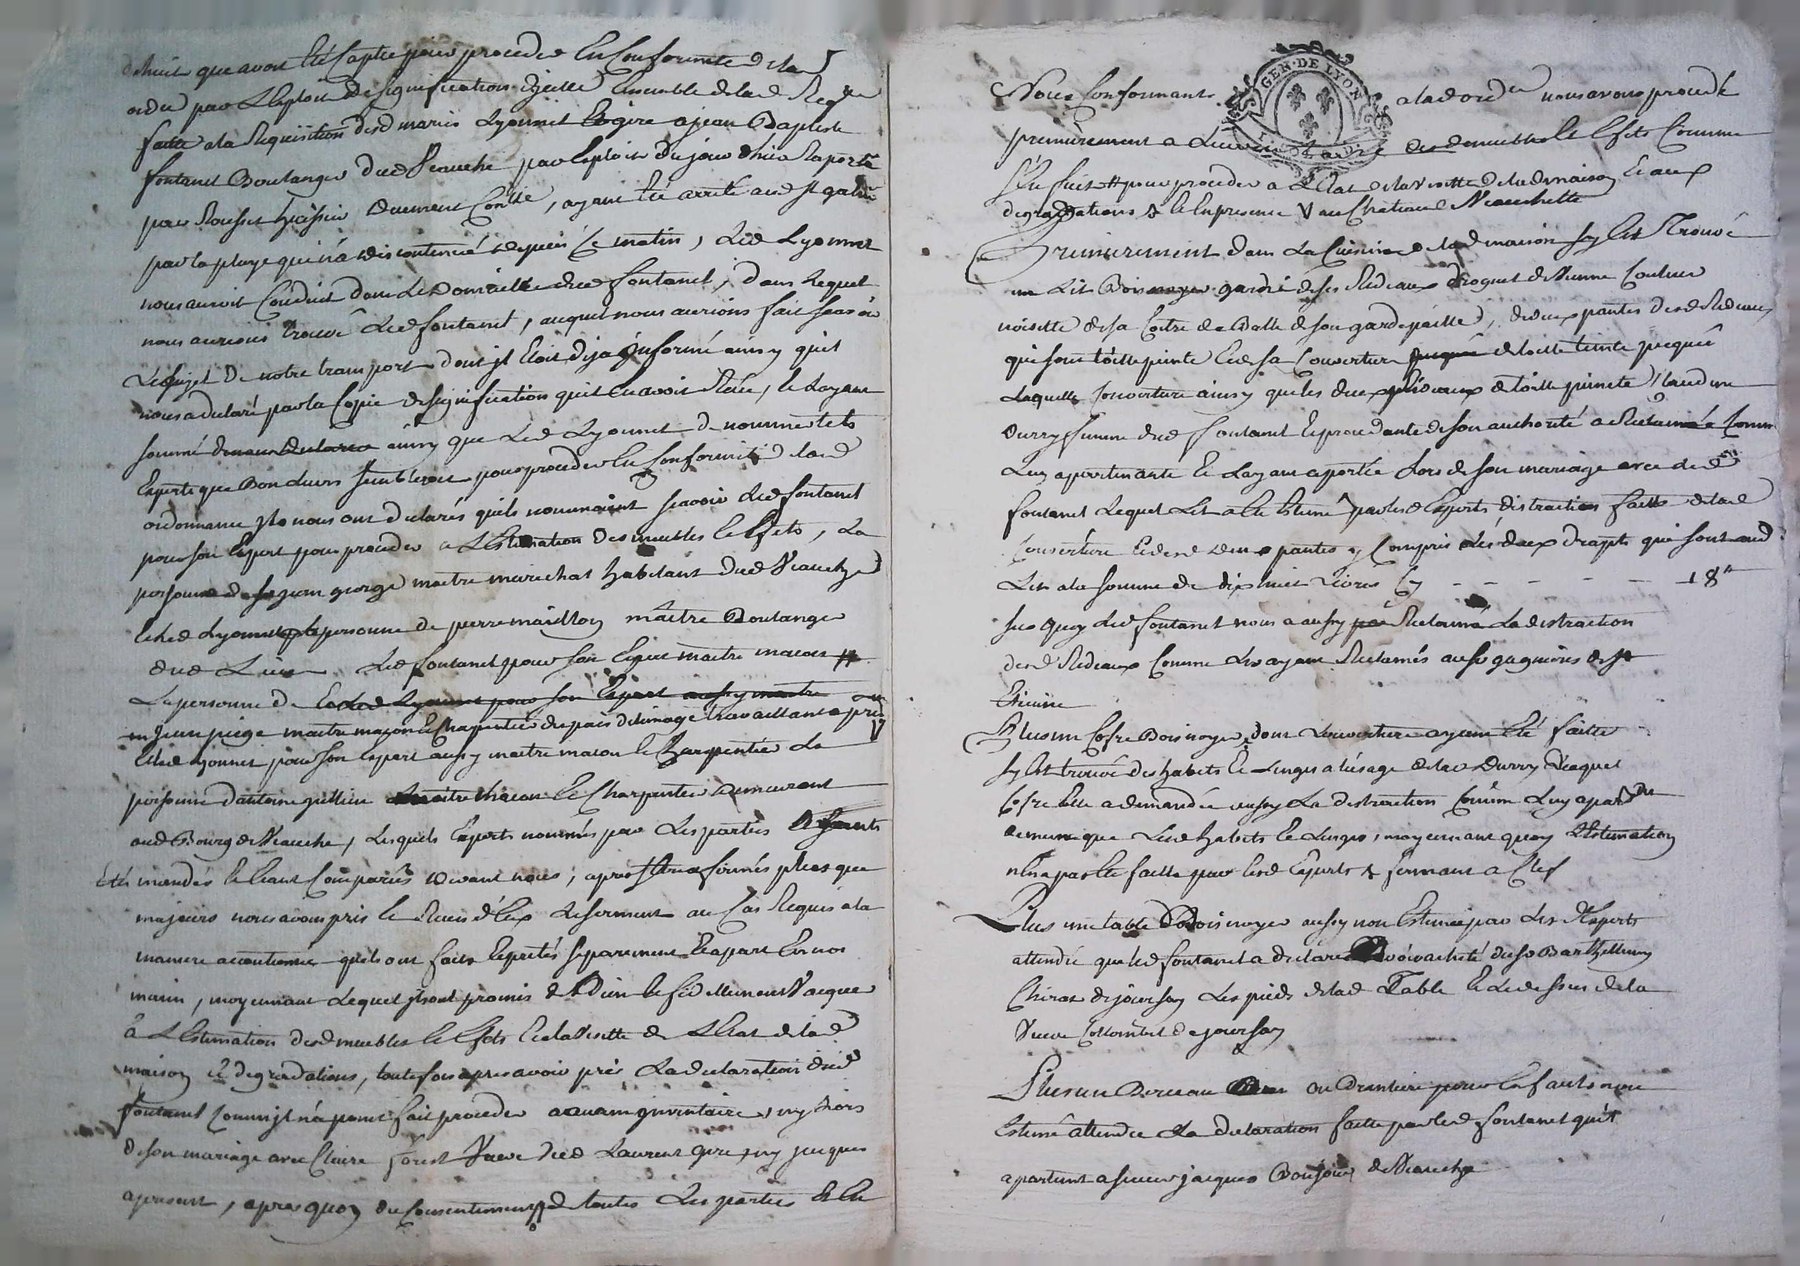 dhuit que avons été Capter pour proceder En Conformité de lad
ordce par Lexploit de signification dicelle Ensemble de lad Reqte
faite a la Requisition desd mariés Lyonnet Et gire a jean Baptiste
fontanet Boulanger dud Veauche par Exploit du jour dhier Raporté
par Rousset huissier duement Conllé, ayant été arrêté aud st galmier
par la pluye qui n'a discontinué depuis Ce matin, Led Lyonnet
nous auroit Conduit dans Le Domicille dud fontanet, dans Lequel
nous aurions trouvé Led fontanet, auquel nous aurions fait scavoir
Le sujet De notre transport dont jl Etoit deja jnformé ainsy quil
nous a declaré par la Copie de signification quil En avoit Reçue, Et Layant
sommé ainsy que Led Lyonnet de nommer tels
Experts que Bon Leurs sembleroit pour proceder En Conformité de lad
ordonnance jls nous ont declarés quils nommoient scavoir Led fontanet
pour son Expert pour proceder a L'Estimation des meubles Et Effets, La
personne de jean george maitre marechal habitant dud Veauche
Et Led Lyonnet La personne de pierre maillon maitre Boulanger
dud Lieu Led fontanet pour son Expert maitre macon #
La personne de Et Led Lyonnet pour son Expert aussy maitre
jean piege maitre maçon Et Charpentier du païs de limage travaillant a
Et Led Lyonnet pour son Expert aussy maitre macon Et Charpentier La
personne d'antoine gullien maitre macon Et Charpentier demeurant
aud Bourg de Veauche, Lesquels Experts nommés par Les parties
étés mandés Et Etant Comparus devant nous, apres s'Etre afirmés plus que
majeurs nous avons pris Et Reçus d'Eux Le serment au Cas Requis a la
maniere accoutumée quils ont faits Et pretés separement Et apart En nos
mains, moyennant Lequel jls ont promis de Bien Et fidellement Vacquer
à L'Estimation desd meubles Et Effets Et a la Visitte de L'Etat de lad
maison Et degradations, toutefois apres avoir pris La declaration dud
fontanet Comm'jl n'a point fait proceder a aucun jnventaire, ny Lors
de son mariage avec Claire forest Veuve dud Laurent gire, ny jusques
apresent, apres quoy du Consentement de toutes Les parties Et En
Nous Conformants a lad ordce nous avons procedé
premierement a desd meubles Et Effets Comme
s'En suit # pour proceder a L'Etat de la Visitte de lad maison Et aux
degradations & Et En presence
Premierement dans La Cuisine de lad maison sy Est Trouvé
un Lit Bois noyer garni de ses Rideaux droguet de Vienne Couleur
noisette de sa Coitre de Balle de son gardepaille, deux pantes desd Rideaux
qui sont toille peinte Et de sa Couverture de toille teinte picquée
Laquelle Couverture ainsy que les deux Rideaux de toille peinte Claudine
Durry femme dud fontanet Et procedante de son authorité a Reclamé Comme
Luy apartenante Et Layant aportée Lors de son mariage avec Led
fontanet Lequel Lit a été Estimé par lesd Experts distraction faitte de lad
Couverture Et desd deux pantes y Compris Les deux drapts qui sont aud
Lit a la somme de dix huit Livres Cy - - - - - - 18tt
sur quoy Led fontanet nous a aussy Reclamé La distraction
desd Rideaux Comme Les ayant Reclamés
Etienne
Plus un Cofre Bois noyer dont Louverture ayant été faitte
sy Est trouvé des habits Et Linges a L'usage de lad Durry Lequel
Cofre Elle a demandée aussy La distraction Comm'Luy apartenant
de meme que Lesd habits Et Linges, moyennant quoy L'Estimation
n'En a pas été faitte par lesd Experts & fermant a Clef
Plus une table Bois noyer aussy non Estimée par Les Experts
attendu que led fontanet a declaré avoir acheté du sr Barthellemy
Chirat de joursay Les pieds de lad Table Et Le dessus de la
Veuve Collombet de joursay
Plus un Berceau ou Dranterie pour Enfant non
Estimé attendu La declaration faitte par led fontanet quil
apartient a sieur jacques Bonjour de Veauche
GEN. DE LYON